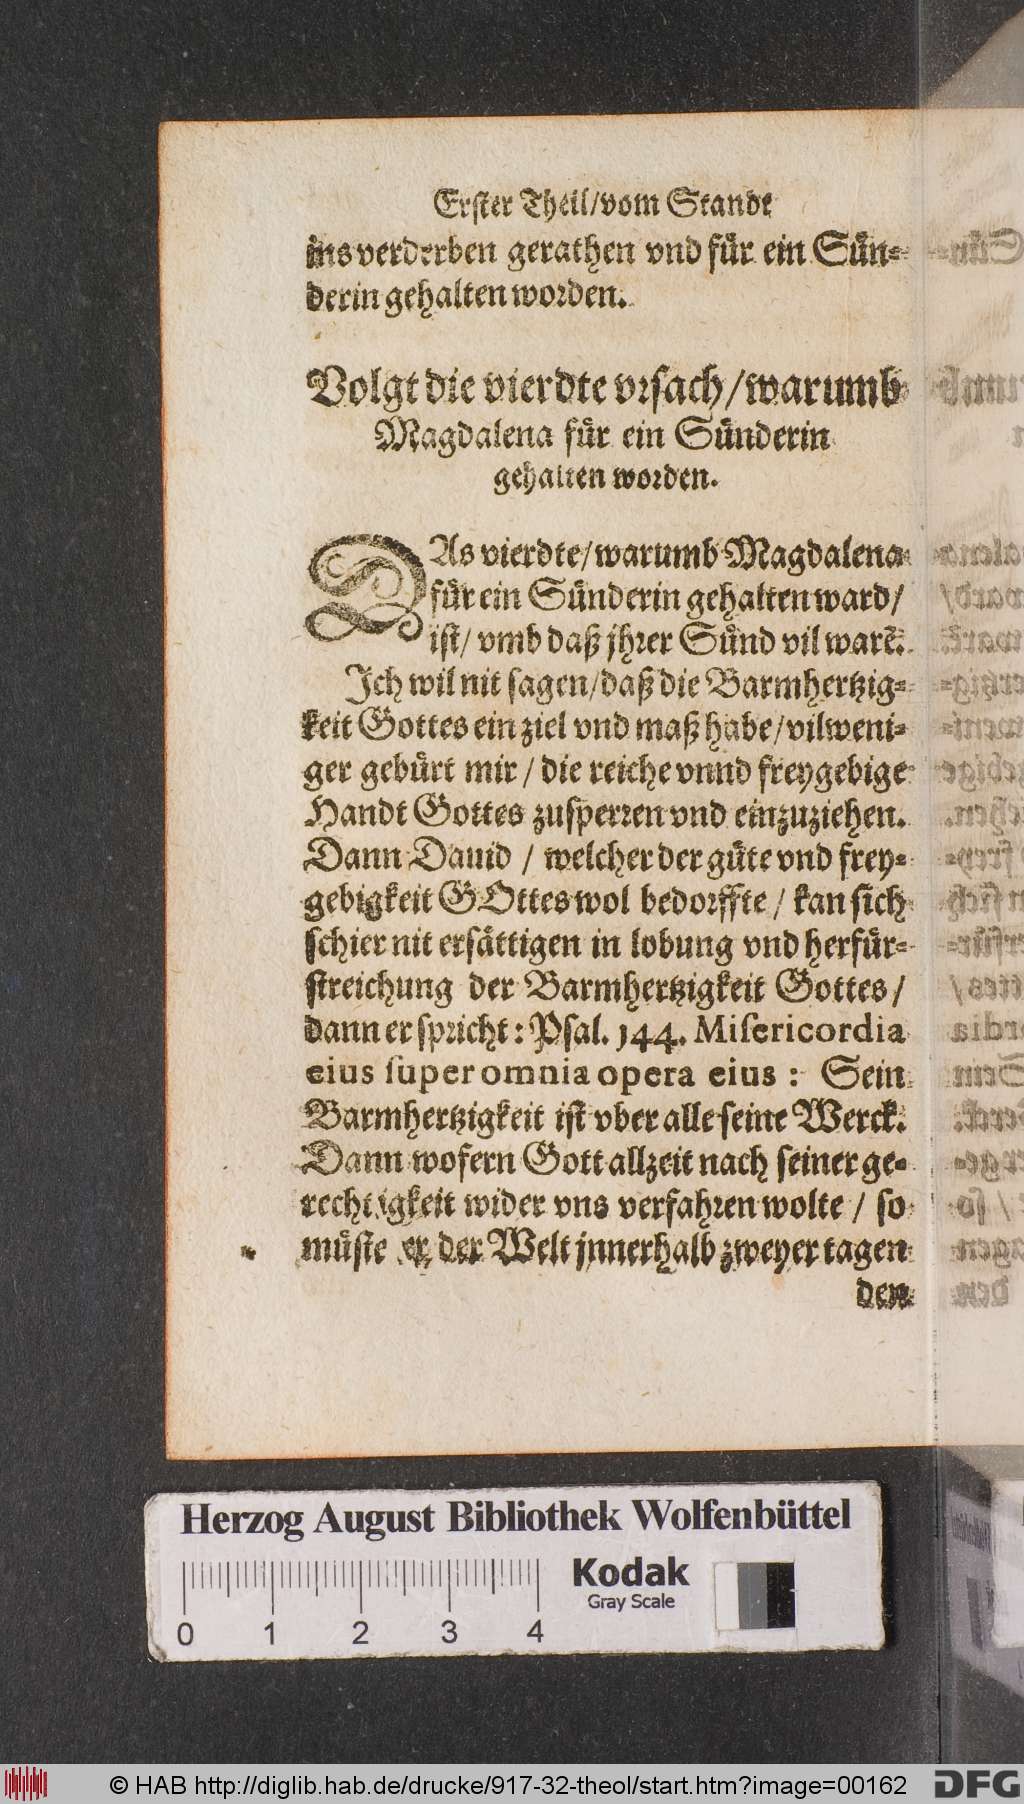 Erster Theil/vom Standt
ins verderben gerathen vnd für ein Sün-
derin gehalten worden.
Volgt die vierdte vrsach/warumb
Magdalena für ein Sünderin
gehalten worden.
DAs vierdte/warumb Magdalena
für ein Sünderin gehalten ward/
ist/ vmb daß jhrer Sünd vil warē.
Ich wil nit sagen/daß die Barmhertzig-
keit Gottes ein ziel vnd maß habe/vilweni-
ger gebürt mir / die reiche vnnd freygebige
Handt Gottes zusperren vnd einzuziehen.
Dann Dauid / welcher der güte vnd frey-
gebigkeit GOttes wol bedorffte / kan sich
schier nit ersättigen in lobung vnd herfür-
streichung der Barmhertzigkeit Gottes /
dann er spricht: Psal. 144. Misericordia
eius super omnia opera eius : Sein
Barmhertzigkeit ist vber alle seine Werck.
Dann wofern Gott allzeit nach seiner ge-
rechtigkeit wider vns verfahren wolte / so
müste er der Welt jnnerhalb zweyer tagen
den
Herzog August Bibliothek Wolfenbüttel
Kodak
Gray Scale
0 1 2 3 4
© HAB http://diglib.hab.de/drucke/917-32-theol/start.htm?image=00162
DFG